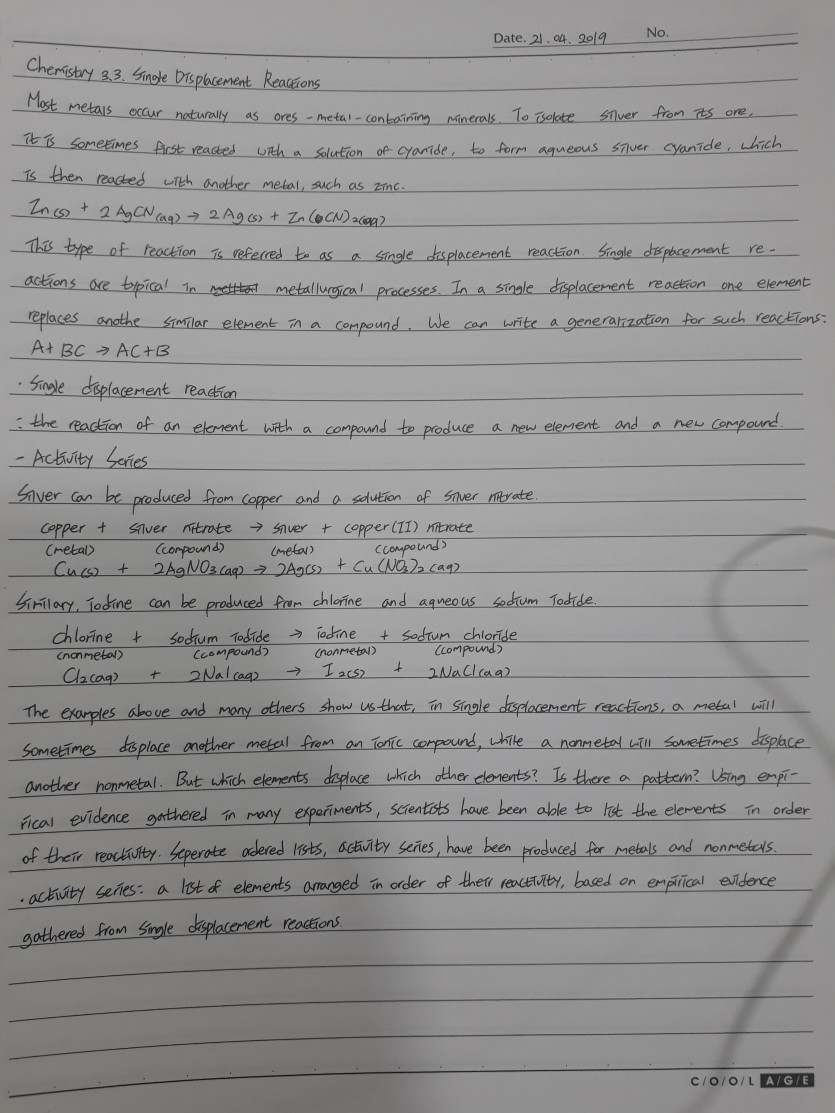 Date. 21. 04. 2019 No.
Chemistry 3.3. Single Displacement Reactions
Most metals occur naturally as ores - metal - containing minerals. To isolate silver from its ore,
it is sometimes first reacted with a solution of cyanide, to form aqueous silver cyanide, which
is then reacted with another metal, such as zinc.
Zn(s) + 2AgCN(aq) → 2Ag(s) + Zn(CN)2(aq)
This type of reaction is referred to as a single displacement reaction. Single displacement re-
actions are typical in metallurgical processes. In a single displacement reaction one element
replaces anothe similar element in a compound. We can write a generalization for such reactions:
A+ BC → AC+B
· Single displacement reaction
: the reaction of an element with a compound to produce a new element and a new compound.
- Activity Series
Silver can be produced from copper and a solution of silver nitrate.
copper + silver nitrate → silver + copper(II) nitrate
(metal) (compound) (metal) (compound)
Cu(s) + 2AgNO3(aq) → 2Ag(s) + Cu(NO3)2(aq)
Similary, Iodine can be produced from chlorine and aqueous sodium Iodide.
chlorine + sodium Iodide → iodine + sodium chloride
(nonmetal) (compound) (nonmetal) (compound)
Cl2(aq) + 2NaI(aq) → I2(s) + 2NaCl(aq)
The examples above and many others show us that, in single displacement reactions, a metal will
sometimes displace another metal from an ionic compound, while a nonmetal will sometimes displace
another nonmetal. But which elements displace which other elements? Is there a pattern? Using empi-
rical evidence gathered in many experiments, scientists have been able to list the elements in order
of their reactivity. Seperate odered lists, activity series, have been produced for metals and nonmetals.
· activity series: a list of elements arranged in order of their reactivity, based on empirical evidence
gathered from single displacement reactions.
C/O/O/L A/G/E